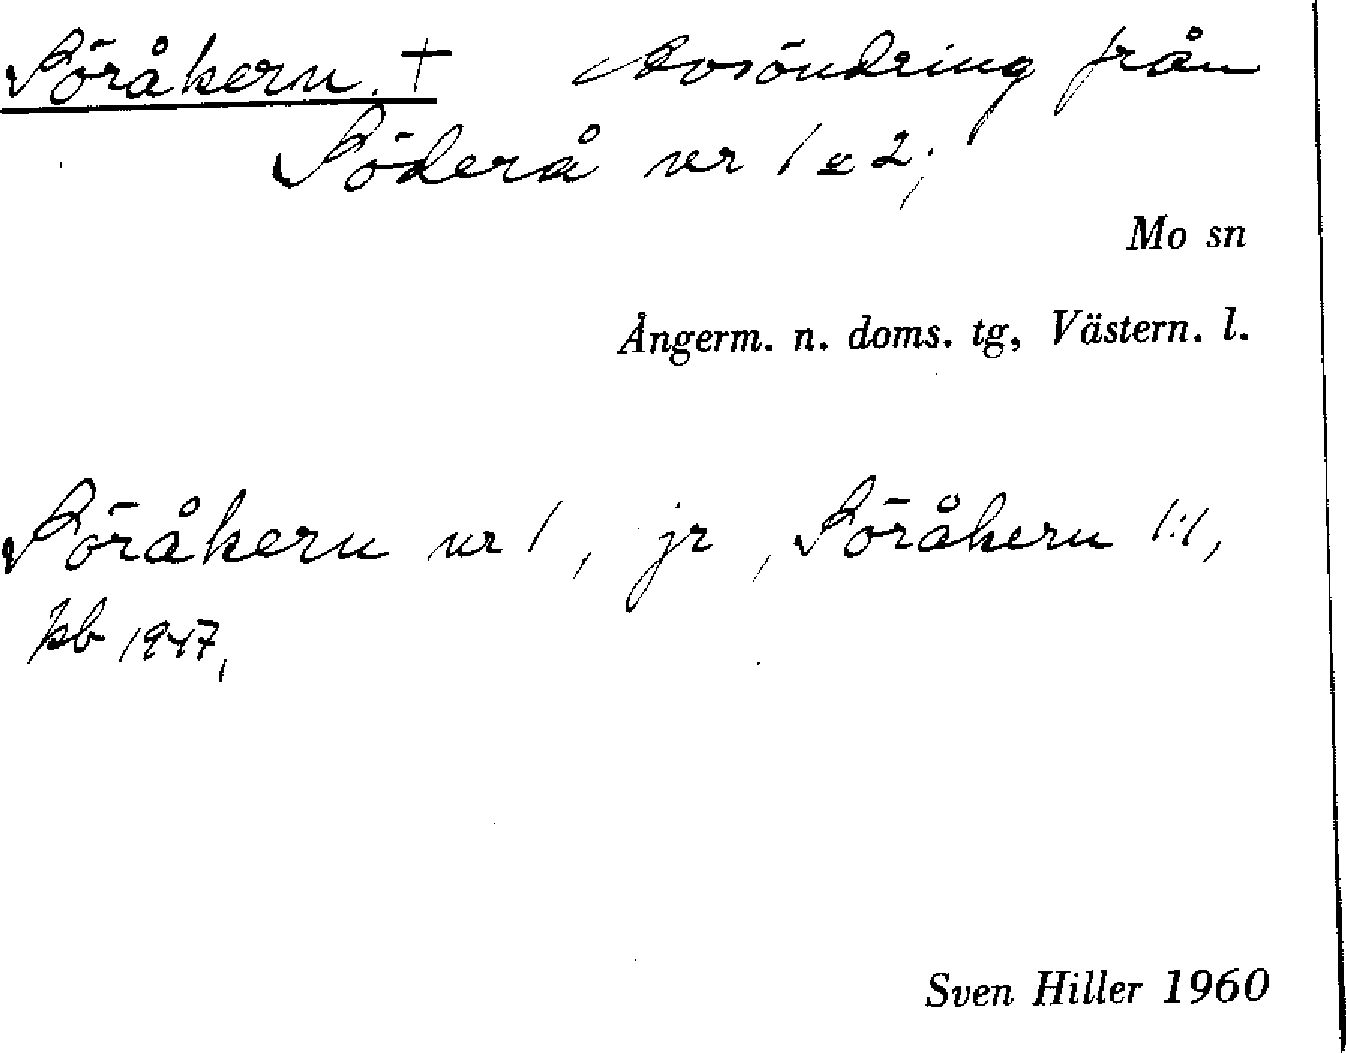 Söråkern. † Avsöndring från
Söderå nr 1 o 2;
Mo sn
Ångerm. n. doms. tg, Västern. l.
Söråkern nr 1, jr, Söråkern 1:1,
kb 1947,
Sven Hiller 1960